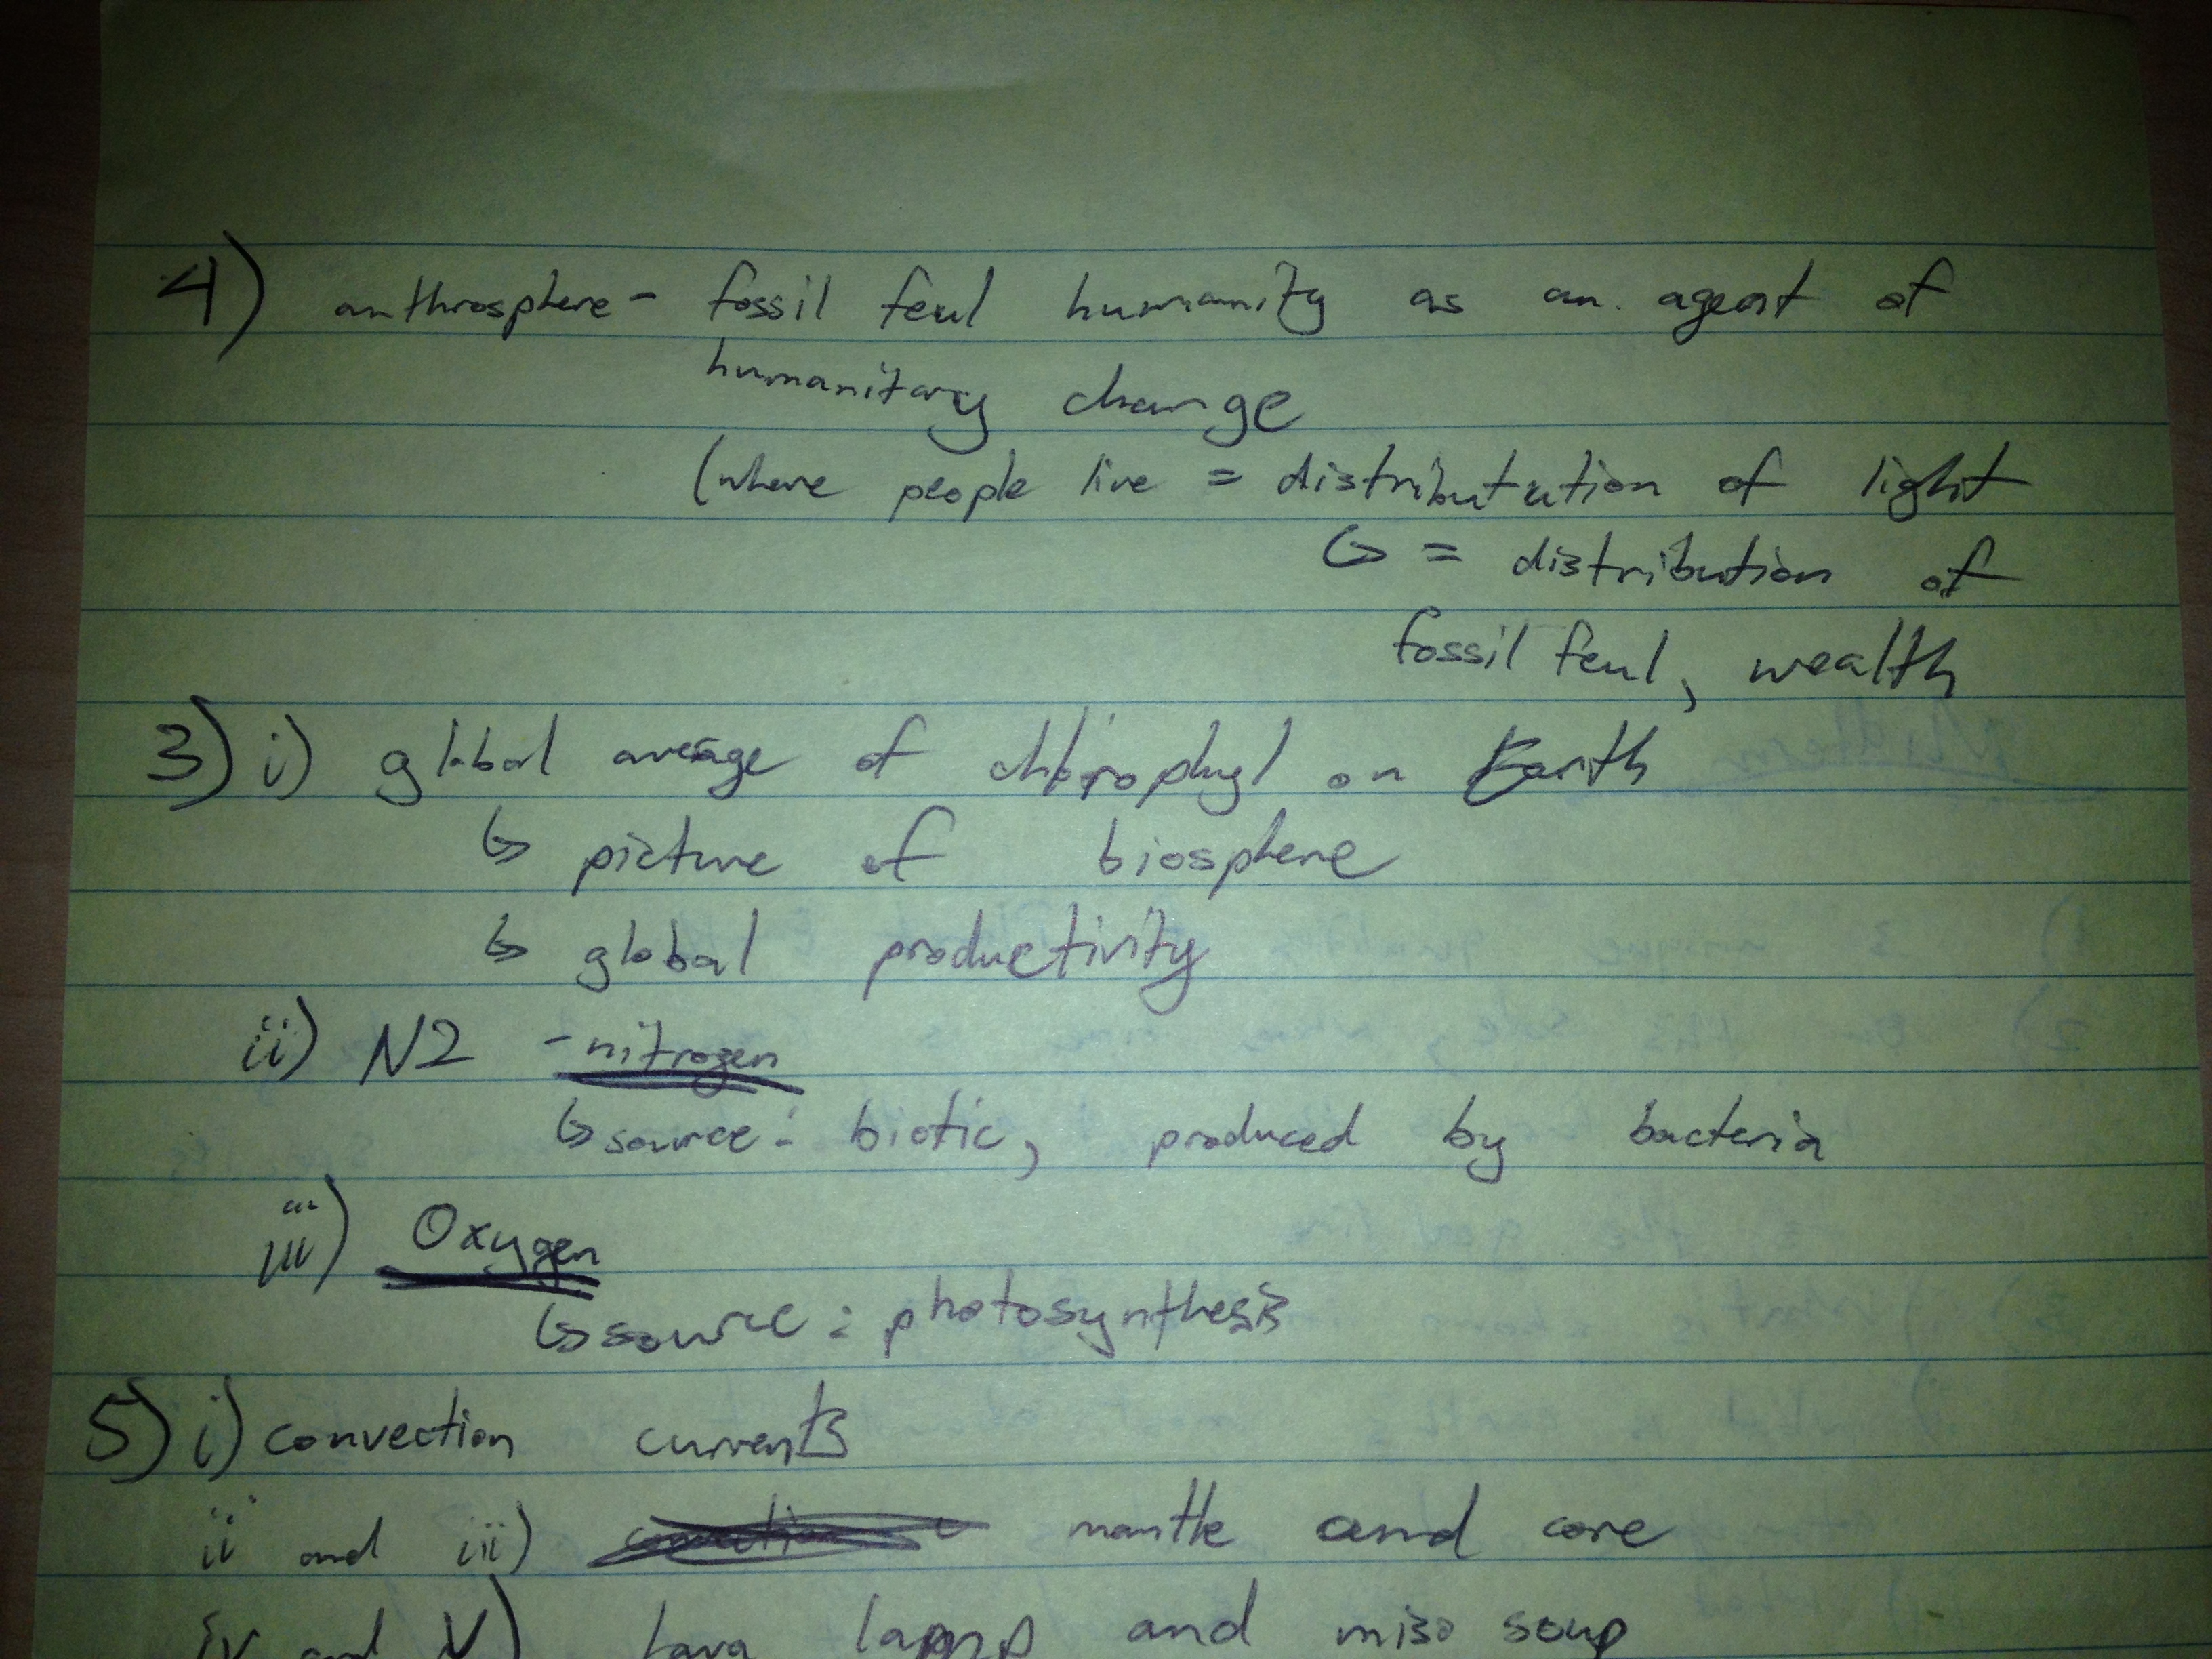 4) anthrosphere - fossil feul humanity as an agent of
humanitary change
(where people live = distributution of light
↳ = distribution of
fossil feul, wealth
3) i) global average of chlorophyl on Earth
↳ picture of biosphere
↳ global productivity
ii) N2 - nitrogen
↳ source: biotic, produced by bacteria
iii) Oxygen
↳ source: photosynthesis
5) i) convection currents
ii and iii) mantle and core
iv and v) lava lamp and miso soup